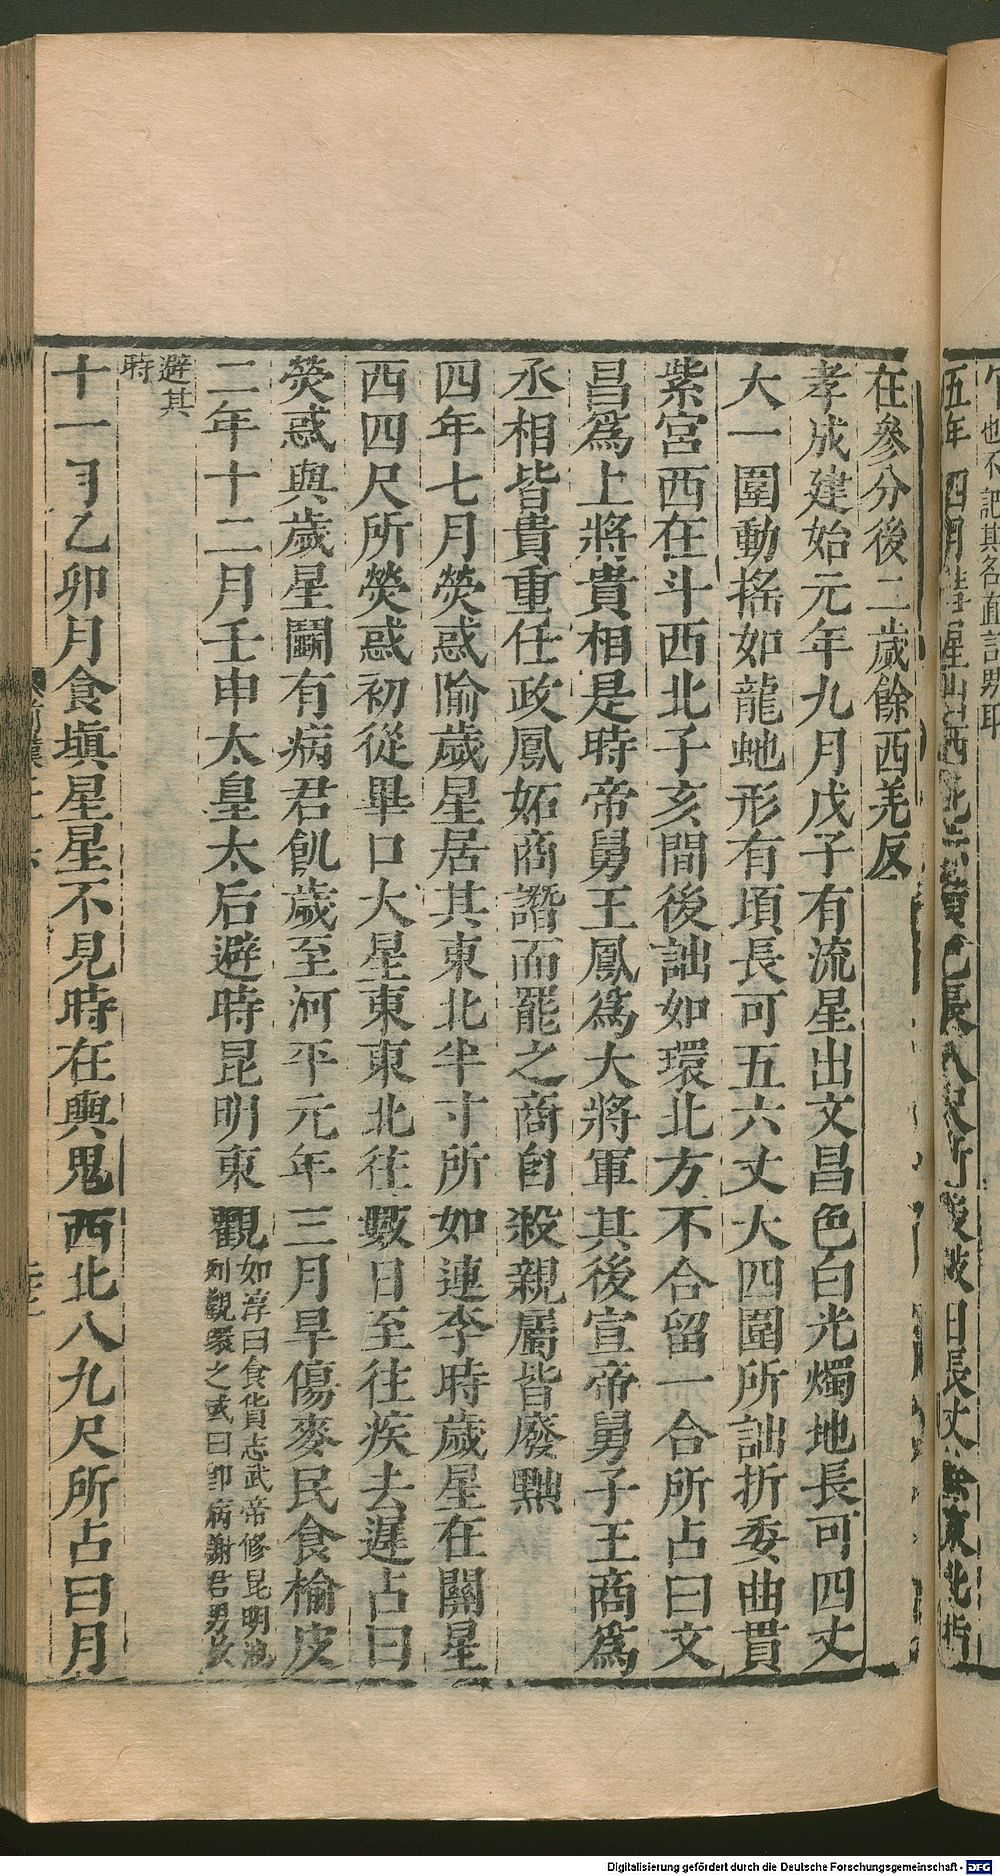 在參分後二歲餘西羌反
孝成建始元年九月戊子有流星出文昌色白光燭地長可四丈
大一圍動搖如龍虵形有頃長可五六丈大四圍所詘折委曲貫
紫宮西在斗西北子亥間後詘如環北方不合留一合所占曰文
昌爲上將貴相是時帝舅王鳳爲大將軍其後宣帝舅子王商爲
丞相皆貴重任政鳳妬商譖而罷之商自殺親屬皆廢黜
四年七月熒惑隃歲星居其東北半寸所如連李時歲星在關星
西四尺所熒惑初從畢口大星東東北往數日至往疾去遲占曰
熒惑與歲星鬭有病君飢歲至河平元年三月旱傷麥民食榆皮
二年十二月壬申太皇太后避時昆明東觀
如淳曰食貨志武帝修昆明池
列觀環之或曰卽病謝君男
避其
時
十一月乙卯月食塡星星不見時在輿鬼西北八九尺所占曰月
Digitalisierung gefördert durch die Deutsche Forschungsgemeinschaft - DFG